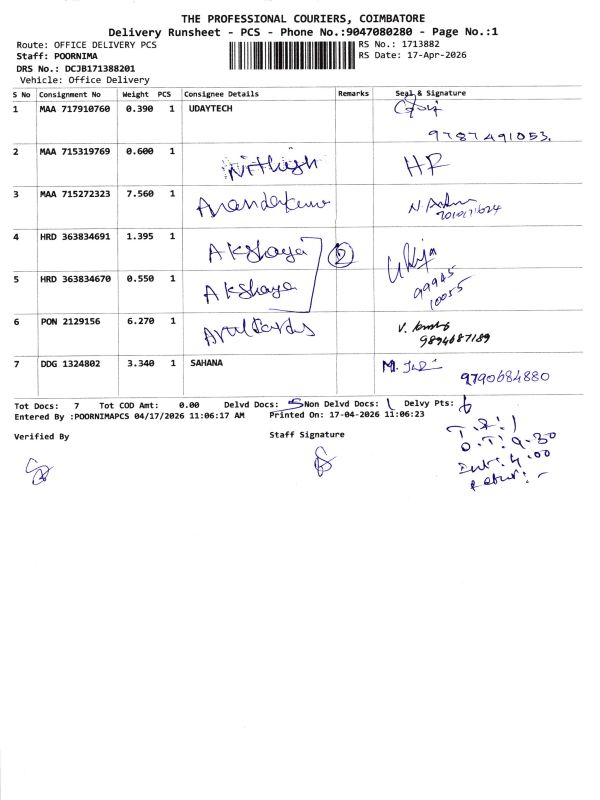 THE PROFESSIONAL COURIERS, COIMBATORE
Delivery Runsheet - PCS - Phone No.:9047080280 - Page No.:1
Route: OFFICE DELIVERY PCS RS No.: 1713882
Staff: POORNIMA RS Date: 17-Apr-2026
DRS No.: DCJB171388201
Vehicle: Office Delivery
S No Consignment No Weight PCS Consignee Details Remarks Seal & Signature
1 MAA 717910760 0.390 1 UDAYTECH
9787491053.
2 MAA 715319769 0.600 1 Nithish HR
3 MAA 715272323 7.560 1 Anandakumar
4 HRD 363834691 1.395 1 Akshaya 2
99945
10055
5 HRD 363834670 0.550 1 Akshaya
6 PON 2129156 6.270 1
9894687189
7 DDG 1324802 3.340 1 SAHANA
9790684880
Tot Docs: 7 Tot COD Amt: 0.00 Delvd Docs: 5 Non Delvd Docs: 1 Delvy Pts: 6
Entered By :POORNIMAPCS 04/17/2026 11:06:17 AM Printed On: 17-04-2026 11:06:23
Verified By Staff Signature
O.T: 9.30